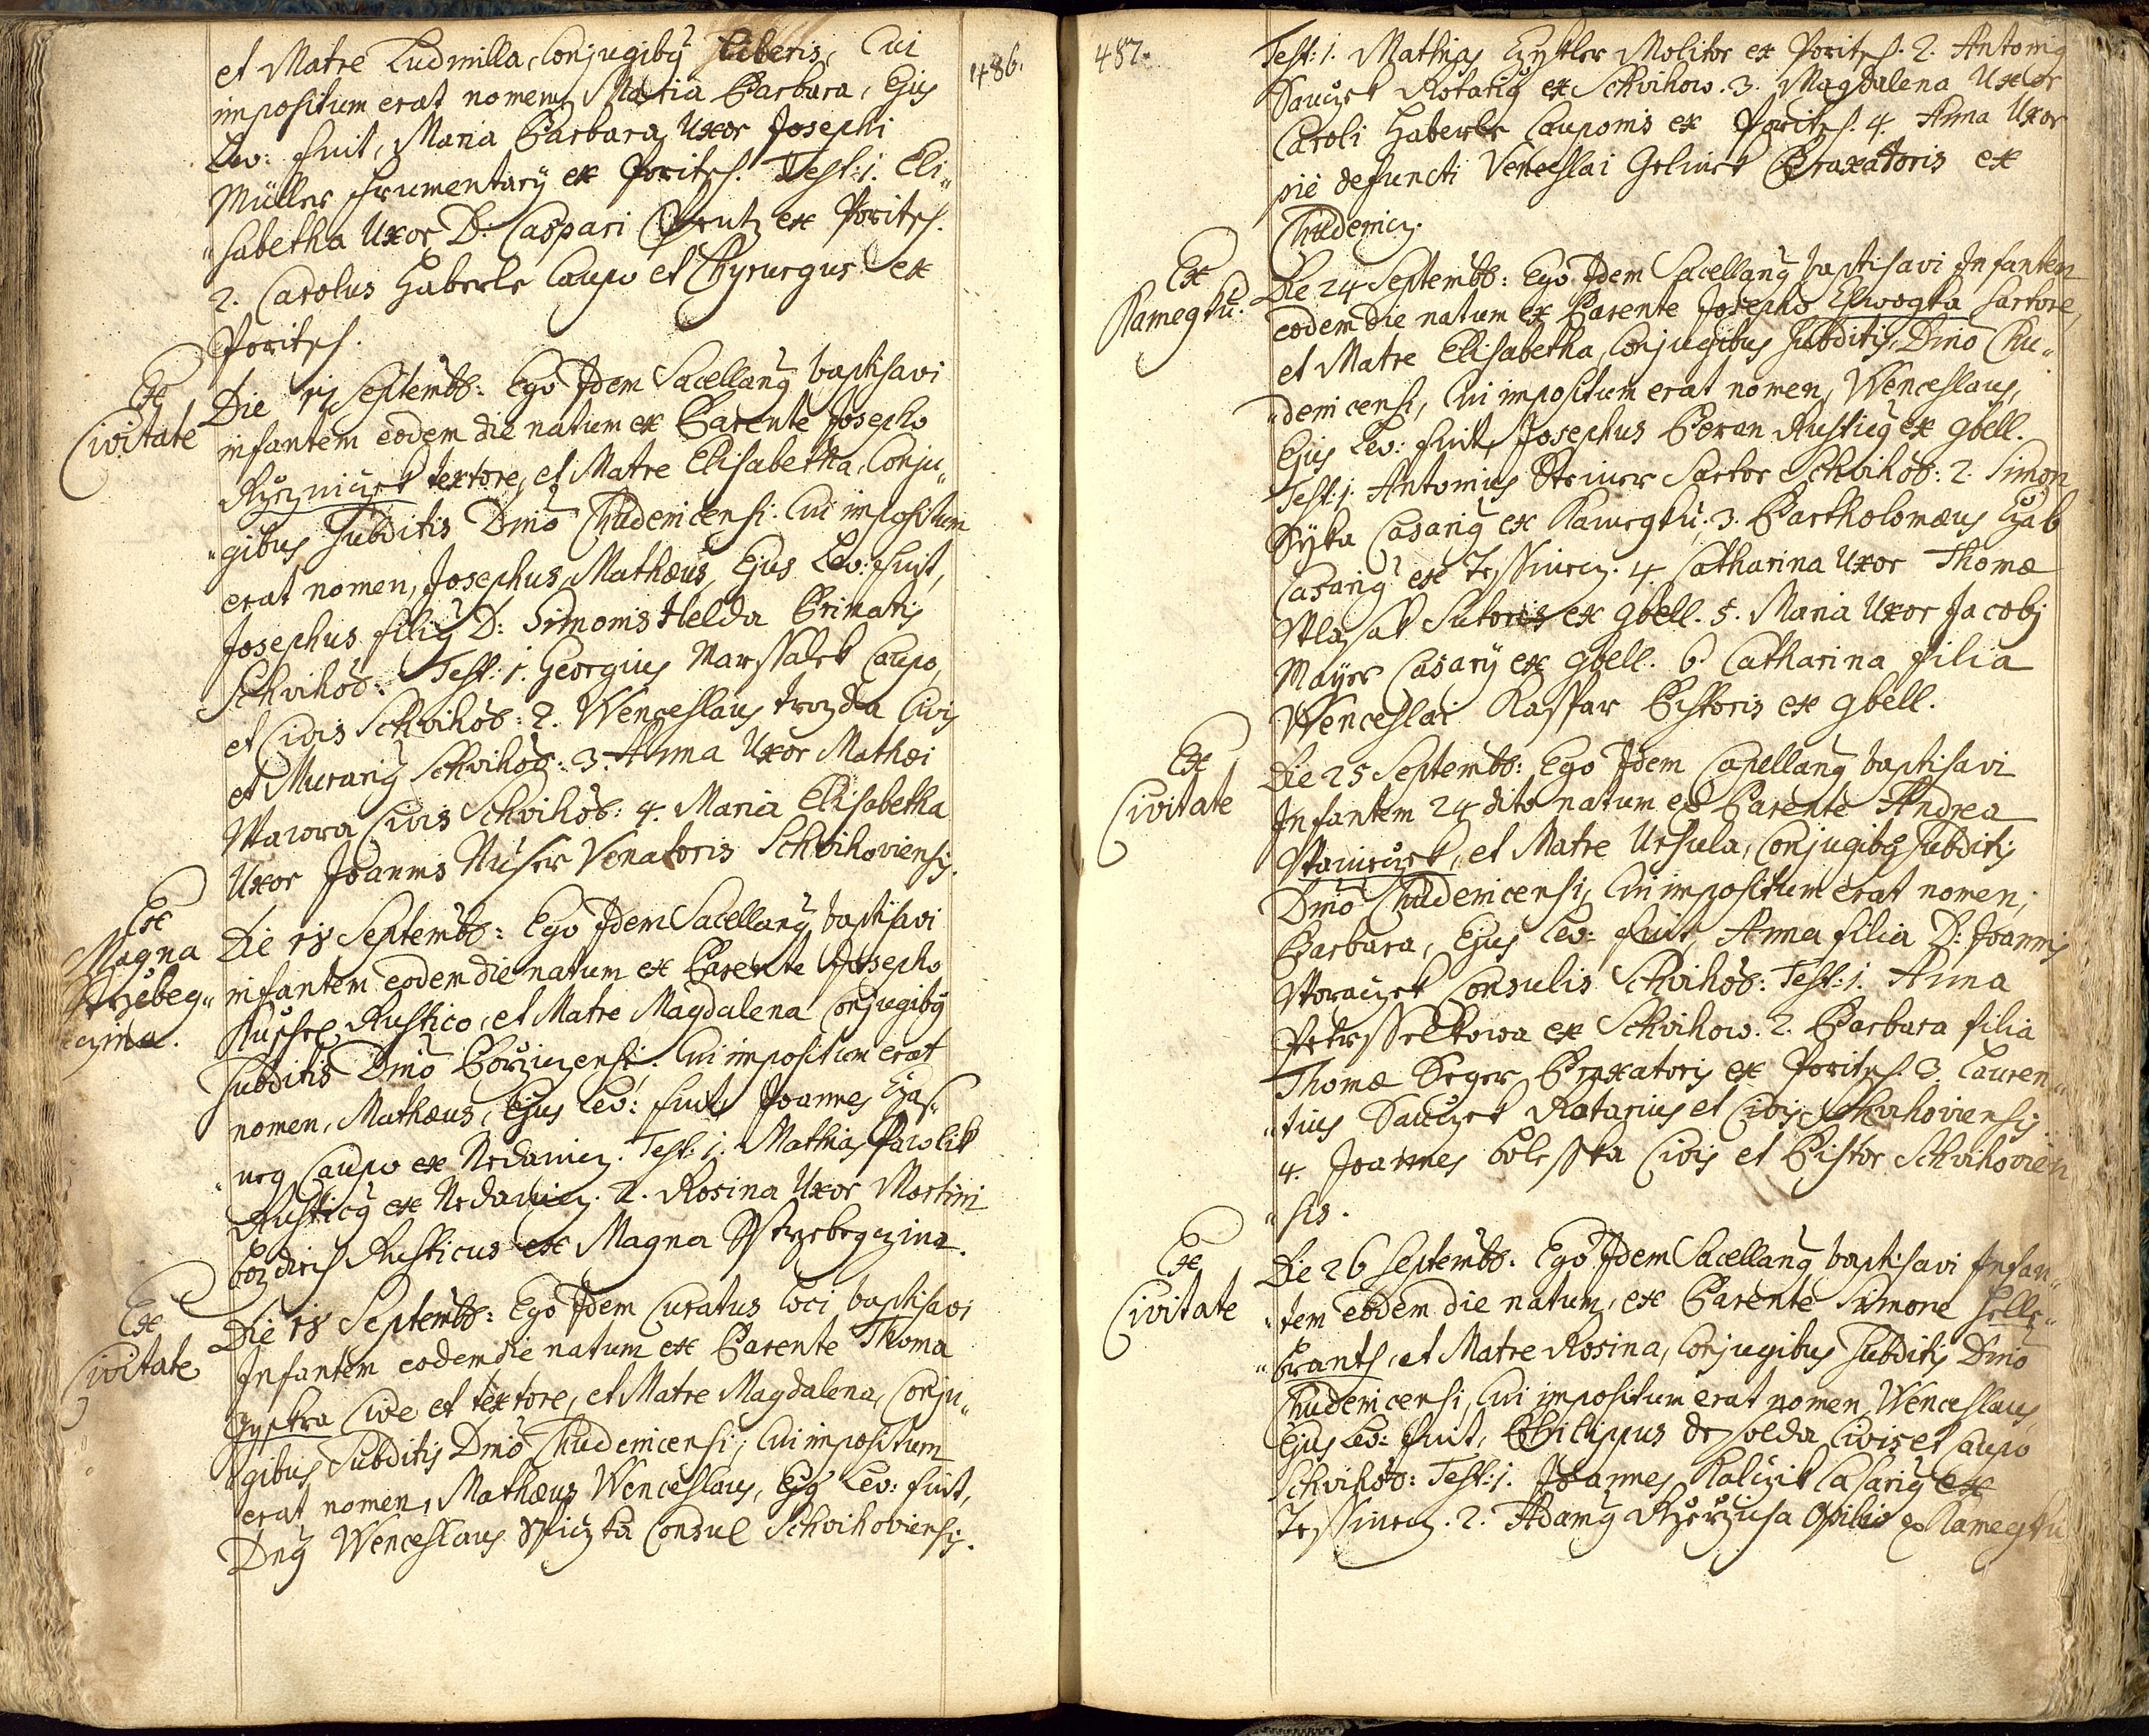 486.
et Matre Ludmilla, Conjugibꝰ Liberis, Cui
impositum erat nomen Maria Barbara, Ejus
Lev: fuit, Maria Barbara Uxor Josephi
Müller frumentarÿ ex Poritsch. Test: 1. Eli„
„sabetha Uxor D: Caspari ex Poritsch.
2. Carolus Haberle Caupo et Chyrurgus ex
Poritsch.
Ex
Civitate
Die Septembr: Ego Idem Sacellanꝰ baptisavi
infantem eodem die natum ex Parente Josepho
textore, et Matre Elisabetha, Conju„
„gibus Subditis Dnio Chudenicensi. Cui impositum
erat nomen, Josephus Mathæus, Ejus Lev: fuit,
Josephus filiꝰ D: Simonis Helda Primatis
Schvihov: Test: 1. Georgius Marssalek Caupo,
et Civis Schvihov: 2. Wenceslaus Civis
et Murariꝰ Schvihov: 3. Anna Uxor Mathæi
Wawra Civis Schvihov: 4. Maria Elisabetha
Uxor Joannis Nuser Venatoris Schvihoviensis.
Ex
Magna
Strzebeg„
czina.
Die 18 Septembr: Ego Idem Sacellanꝰ baptisavi
infantem eodem die natum ex Parente Josepho
Rustico, et Matre Magdalena Conjugibꝰ
Subditis Dnio Borzicensi. Cui impositum erat
nomen, Mathæus, Ejus Lev: fuit, Joannes
Caupo ex Nedanicz. Test: 1. Mathias Pawlik
Rusticꝰ ex Nedanicz. 2. Rosina Uxor Martini
Rusticus ex Magna Strzebegczina.
Ex
Civitate
Die 18 Septembr: Ego Idem Curatus loci baptisavi
Infantem eodem die natum ex Parente Thoma
Cive et textore, et Matre Magdalena, Conju„
„gibus Subditis Dnio Chudenicensi, Cui impositum
erat nomen, Mathæus Wenceslaus, Ejꝰ Lev: fuit,
Dnꝰ Wenceslaus Consul Schvihoviensis.
487.
Test: 1. Mathias Molitor ex Poritsch. 2. Antoniꝰ
Sauczek Rotariꝰ ex Schvihow. 3. Magdalena Uxor
Caroli Haberle Cauponis ex Poritsch. 4. Anna Uxor
pie defuncti Venceslai Gelinek Braxatoris ex
Chudenicz.
Ex
Kamegku.
Die 24 Septembr: Ego Idem Sacellanꝰ baptisavi Infantem
eodem die natum ex Parente Josepho sartore,
et Matre Elisabetha, Conjugibus Subditis Dnio Chu„
„denicensi, Cui impositum erat nomen, Wenceslaus,
Ejus Lev: fuit, Josephus Beran Rusticꝰ ex Gbell.
Test: 1. Antonius Steiner Sartor Schvihov: 2. Simon
Syka Casariꝰ ex Kamegku. 3. Bartholomæus
Casariꝰ ex Tessinicz. 4. Catharina Uxor Thomæ
Sutoris ex Gbell. 5. Maria Uxor Jacobi
Mayer Casarÿ ex Gbell. 6. Catharina filia
Wenceslai Kasspar Pistoris ex Gbell.
Ex
Civitate
Die 25 Septembr: Ego Idem Capellanꝰ baptisavi
Infantem 24 dito natum ex Parente Andrea
et Matre Ursula, Conjugibꝰ Subditis
Dnio Chudenicensi, Cui impositum erat nomen,
Barbara, Ejus Lev: fuit, Anna filia D: Joannis
Woraczek Consulis Schvihov: Test: 1. Anna
ex Schvihow. 2. Barbara filia
Thomæ Seger Braxatoris ex Poritsch. 3. Lauren„
„tius Sauczek Rotarius et Civis Schvihoviensis.
4. Joannes Civis et Pistor Schvihovien
„sis.
Ex
Civitate
Die 26 Septembr: Ego Idem Sacellanꝰ baptisavi Infan„
„tem eodem die natum, ex Parente Simone Helle„
„brantt, et Matre Rosina, Conjugibus Subditis Dnio
Chudenicensi, Cui impositum erat nomen Wenceslaus,
Ejus Lev: fuit, Philippus Civis et Caupo
Schvihov: Test: 1. Joannes Kalczik Casariꝰ ex
Tessinicz. 2. Adamꝰ Opilio ex Kamegku